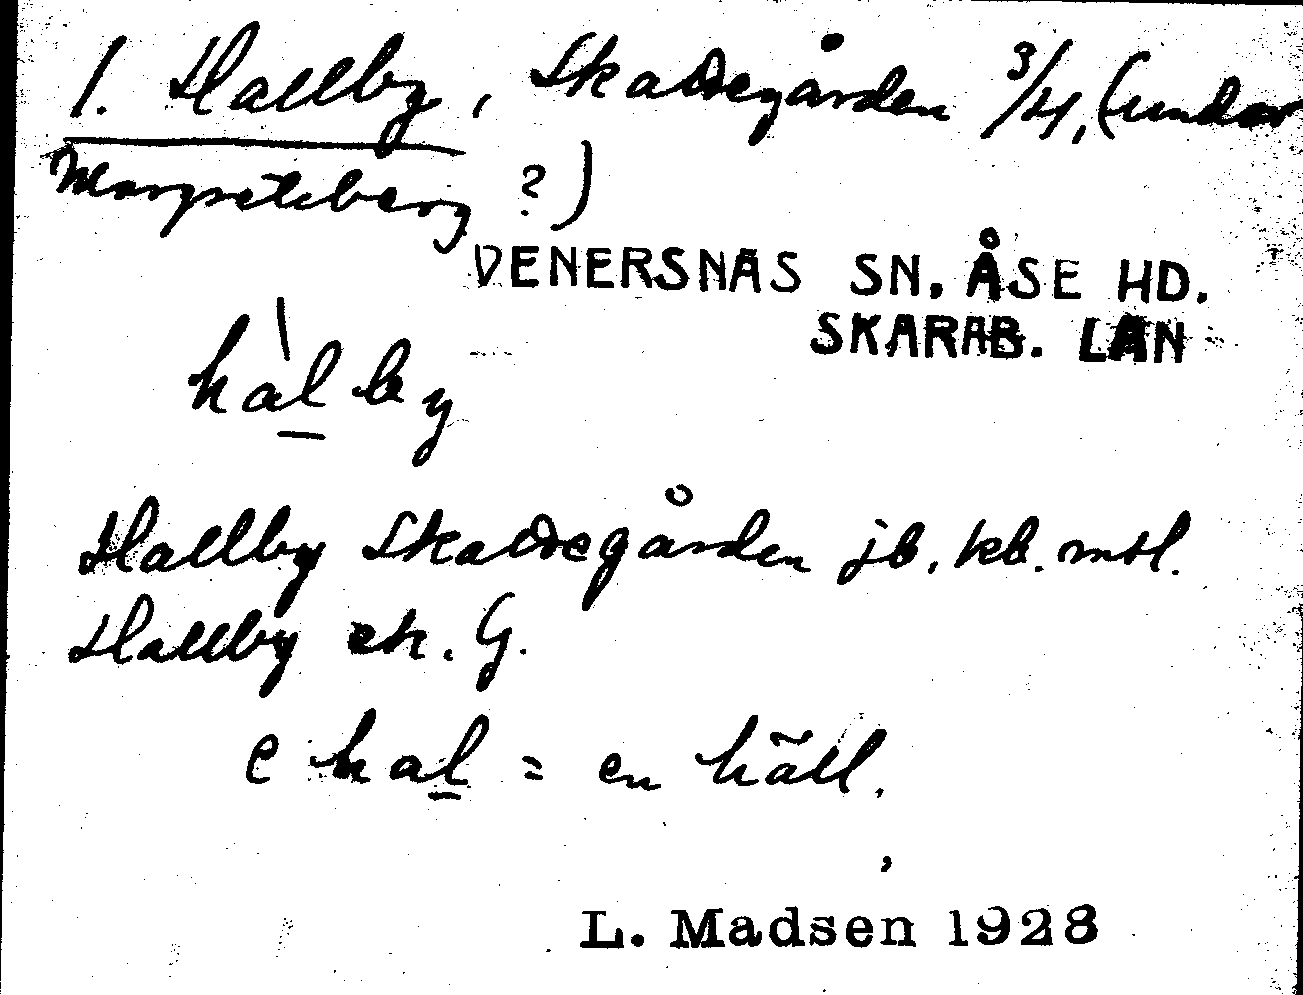 1. Hallby, Skattegården 3/4, (under
Margreteberg ?)
VENERSNÄS SN. ÅSE HD.
SKARAB. LÄN
hàlby
Hallby Skattegården jb. kb. mtl.
Hallby ek. G.
e hal = en häll.
L. Madsen 1928